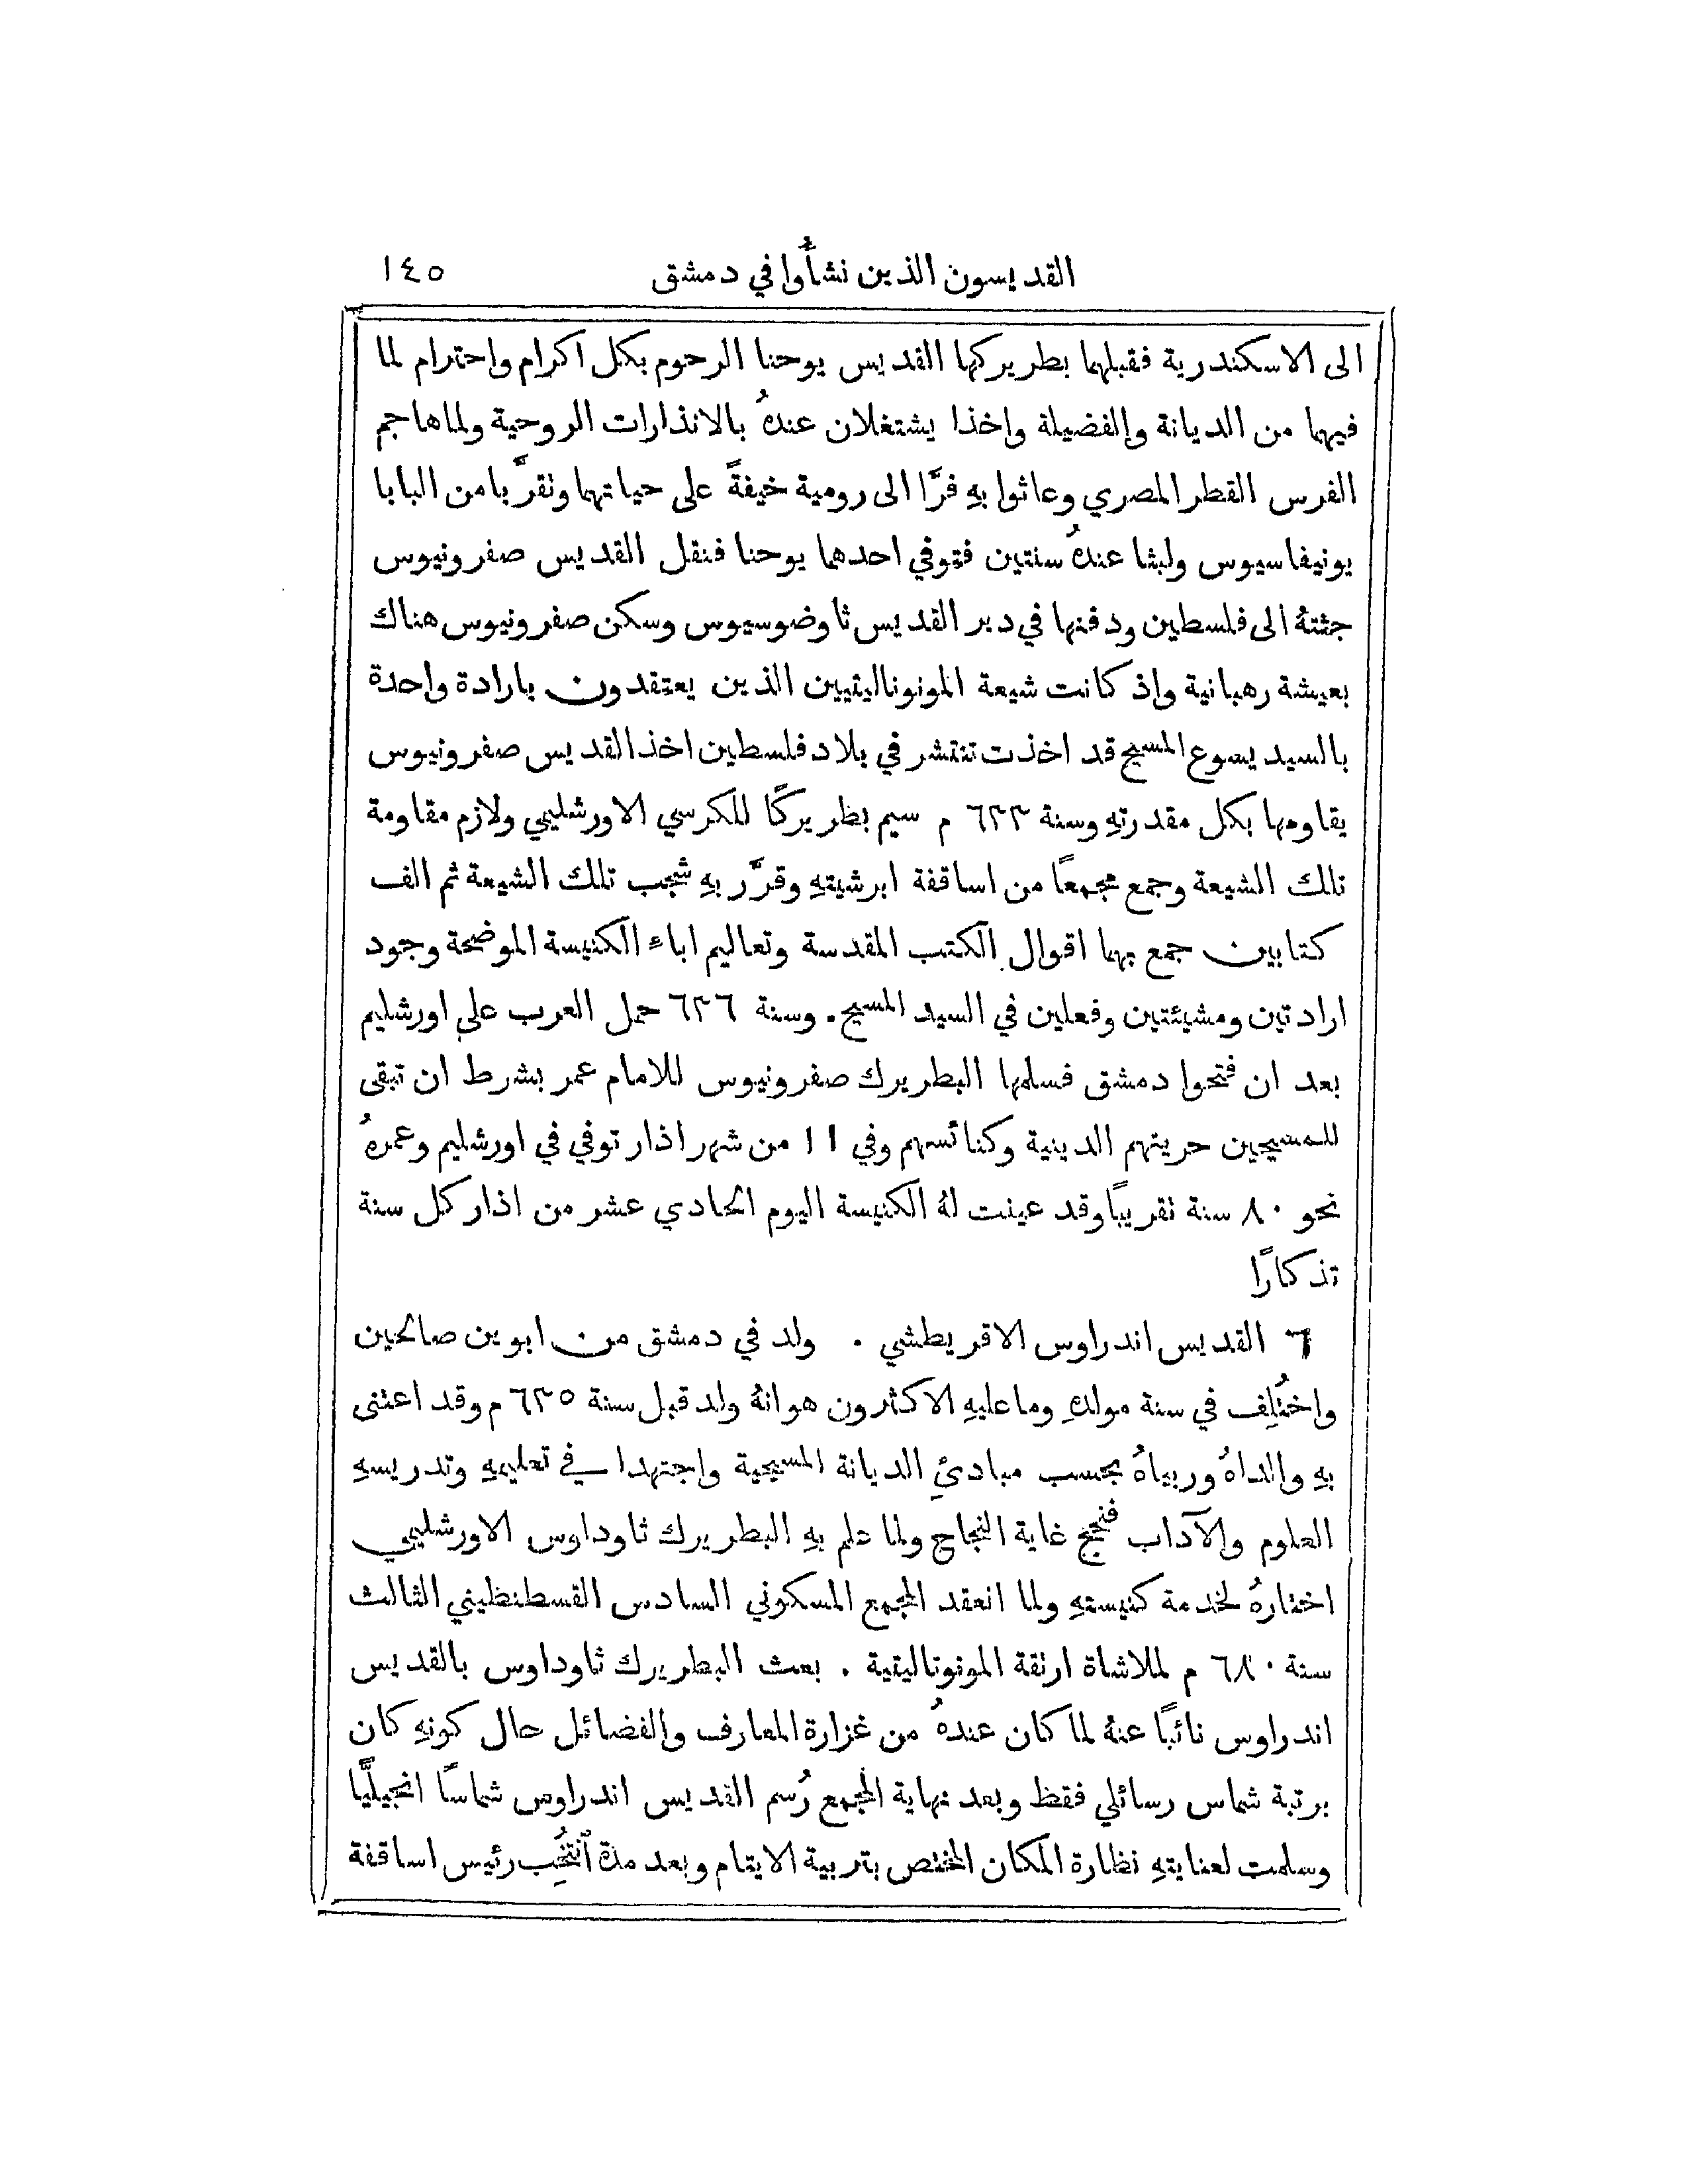 القديسون الذين نشأوا في دمشق ١٤٥
الى الاسكندرية فقبلهما بطريركها القديس يوحنا الرحوم بكل اكرام واحترام لما
فيهما من الديانة والفضيلة واخذا يشتغلان عندهُ بالانذارات الروحية ولما هاجم
الفرس القطر المصري وعاثوا بهِ فرَّا الى رومية خيفةً على حياتهما وتقرَّبا من البابا
يونيفاسيوس ولبثا عندهُ سنتين فتوفي احدهما يوحنا فنقل القديس صفرونيوس
جثتهُ الى فلسطين ودفنها في دير القديس ثاوضوسيوس وسكن صفرونيوس هناك
بعيشة رهبانية واذ كانت شيعة المونوثاليثيين الذين يعتقدون بارادة واحدة
بالسيد يسوع المسيح قد اخذت تنتشر في بلاد فلسطين اخذ القديس صفرونيوس
يقاومها بكل مقدرتهِ وسنة ٦٣٣ م سيم بطريركًا للكرسي الاورشليمي ولازم مقاومة
تلك الشيعة وجمع مجمعًا من اساقفة ابرشيتهِ وقرَّر بهِ شجب تلك الشيعة ثم الف
كتابين جمع بهما اقوال الكتب المقدسة وتعاليم اباء الكنيسة الموضحة وجود
ارادتين ومشيئتين وفعلين في السيد المسيح. وسنة ٦٣٦ حمل العرب على اورشليم
بعد ان فتحوا دمشق فسلمها البطريرك صفرونيوس للامام عمر بشرط ان تبقى
للمسيحيين حريتهم الدينية وكنائسهم وفي ١١ من شهر اذار توفي في اورشليم وعمرهُ
نحو ٨٠ سنة تقريبًا وقد عينت لهُ الكنيسة اليوم الحادي عشر من اذار كل سنة
تذكارًا
٦ القديس اندراوس الاقريطشي . ولد في دمشق من ابوين صالحين
واختُلِف في سنة مولدهِ وما عليهِ الاكثرون هو انهُ ولد قبل سنة ٦٣٥ م وقد اعتنى
بهِ والداهُ وربياهُ بحسب مبادئِ الديانة المسيحية واجتهدا في تعليمهِ وتدريسهِ
العلوم والآداب فنجح غاية النجاح ولما علم بهِ البطريرك ثاوداوس الاورشليمي
اختارهُ لخدمة كنيستهِ ولما انعقد المجمع المسكوني السادس القسطنطيني الثالث
سنة ٦٨٠ م لملاشاة ارتقة المونوثاليتية . بعث البطريرك ثاوداوس بالقديس
اندراوس نائبًا عنهُ لما كان عندهُ من غزارة المعارف والفضائل حال كونهِ كان
برتبة شماس رسائلي فقط وبعد نهاية المجمع رُسم القديس اندراوس شماسًا انجيليًّا
وسلمت لعنايتهِ نظارة المكان المختص بتربية الايتام وبعد مدة اُنتُخِب رئيس اساقفة